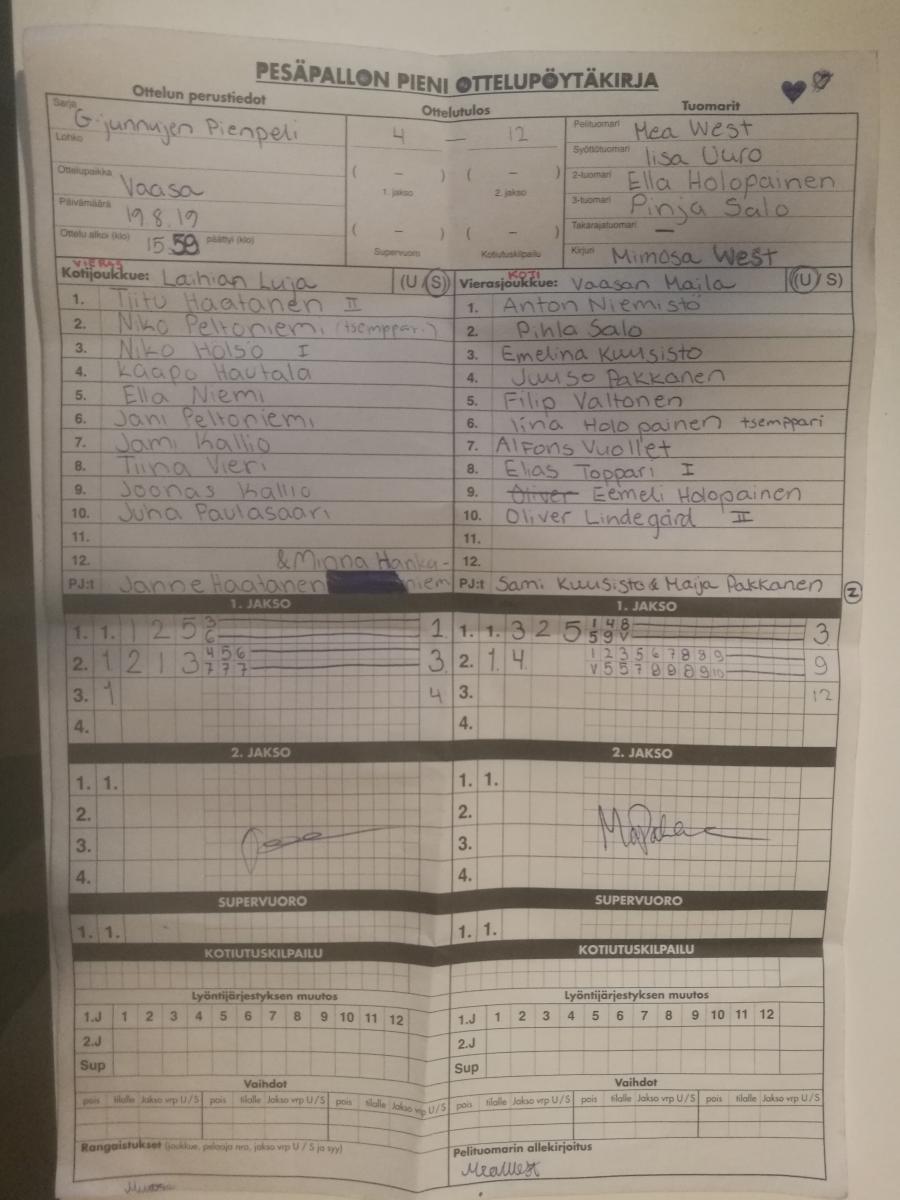 PESÄPALLON PIENI OTTELUPÖYTÄKIRJA
Ottelun perustiedot
Ottelutulos
Tuomarit
Sarja G-junnujen Pienpeli
Lohko
Ottelupaikka Vaasa
Päivämäärä 19.8.19
Ottelu alkoi (klo) 15.59 päättyi (klo)
4 — 12
( – ) ( – )
1. jakso 2. jakso
( – ) ( – )
Supervuoro Kotiutuskilpailu
Pelituomari Mea West
Syöttötuomari Iisa Uuro
2-tuomari Ella Holopainen
3-tuomari Pinja Salo
Takarajatuomari –
Kirjuri Mimosa West
VIERAS
Kotijoukkue: Laihian Luja (U/S)
1. Tiitu Haatanen II
2. Niko Peltoniemi (tsemppari)
3. Niko Holsö I
4. Kaapo Hautala
5. Ella Niemi
6. Jani Peltoniemi
7. Jami Kallio
8. Tiina Vieri
9. Joonas Kallio
10. Juha Paulasaari
11.
12. & Minna Hanka-
PJ:t Janne Haatanen niemi
KOTI
Vierasjoukkue: Vaasan Maila (U/S)
1. Anton Niemistö
2. Pihla Salo
3. Emelina Kuusisto
4. Juuso Pakkanen
5. Filip Valtonen
6. Iina Holopainen tsemppari
7. Alfons Vuollet
8. Elias Toppari I
9. Oliver Eemeli Holopainen
10. Oliver Lindegård II
11.
12.
PJ:t Sami Kuusisto & Maija Pakkanen
2
1. JAKSO
1. 1. 1 2 5 3 1
6
2. 1 2 1 3 4 5 6 3
7 7 7
3. 1 4
4.
1. JAKSO
1. 1. 3 2 5 1 4 8 3
5 9 V
2. 1 4 1 2 3 5 6 7 8 8 9 9
V 5 5 7 8 8 8 9 10
3. 12
4.
2. JAKSO
1. 1.
2.
3.
4.
2. JAKSO
1. 1.
2.
3.
4.
SUPERVUORO
1. 1.
SUPERVUORO
1. 1.
KOTIUTUSKILPAILU
KOTIUTUSKILPAILU
Lyöntijärjestyksen muutos
1.J 1 2 3 4 5 6 7 8 9 10 11 12
2.J
Sup
Lyöntijärjestyksen muutos
1.J 1 2 3 4 5 6 7 8 9 10 11 12
2.J
Sup
Vaihdot
pois tilalle Jakso vrp U/S pois tilalle Jakso vrp U/S pois tilalle Jakso vrp U/S
Vaihdot
pois tilalle Jakso vrp U/S pois tilalle Jakso vrp U/S pois tilalle Jakso vrp U/S
Rangaistukset (joukkue, pelaaja nro, jakso vrp U / S ja syy)
Pelituomarin allekirjoitus
Mea West